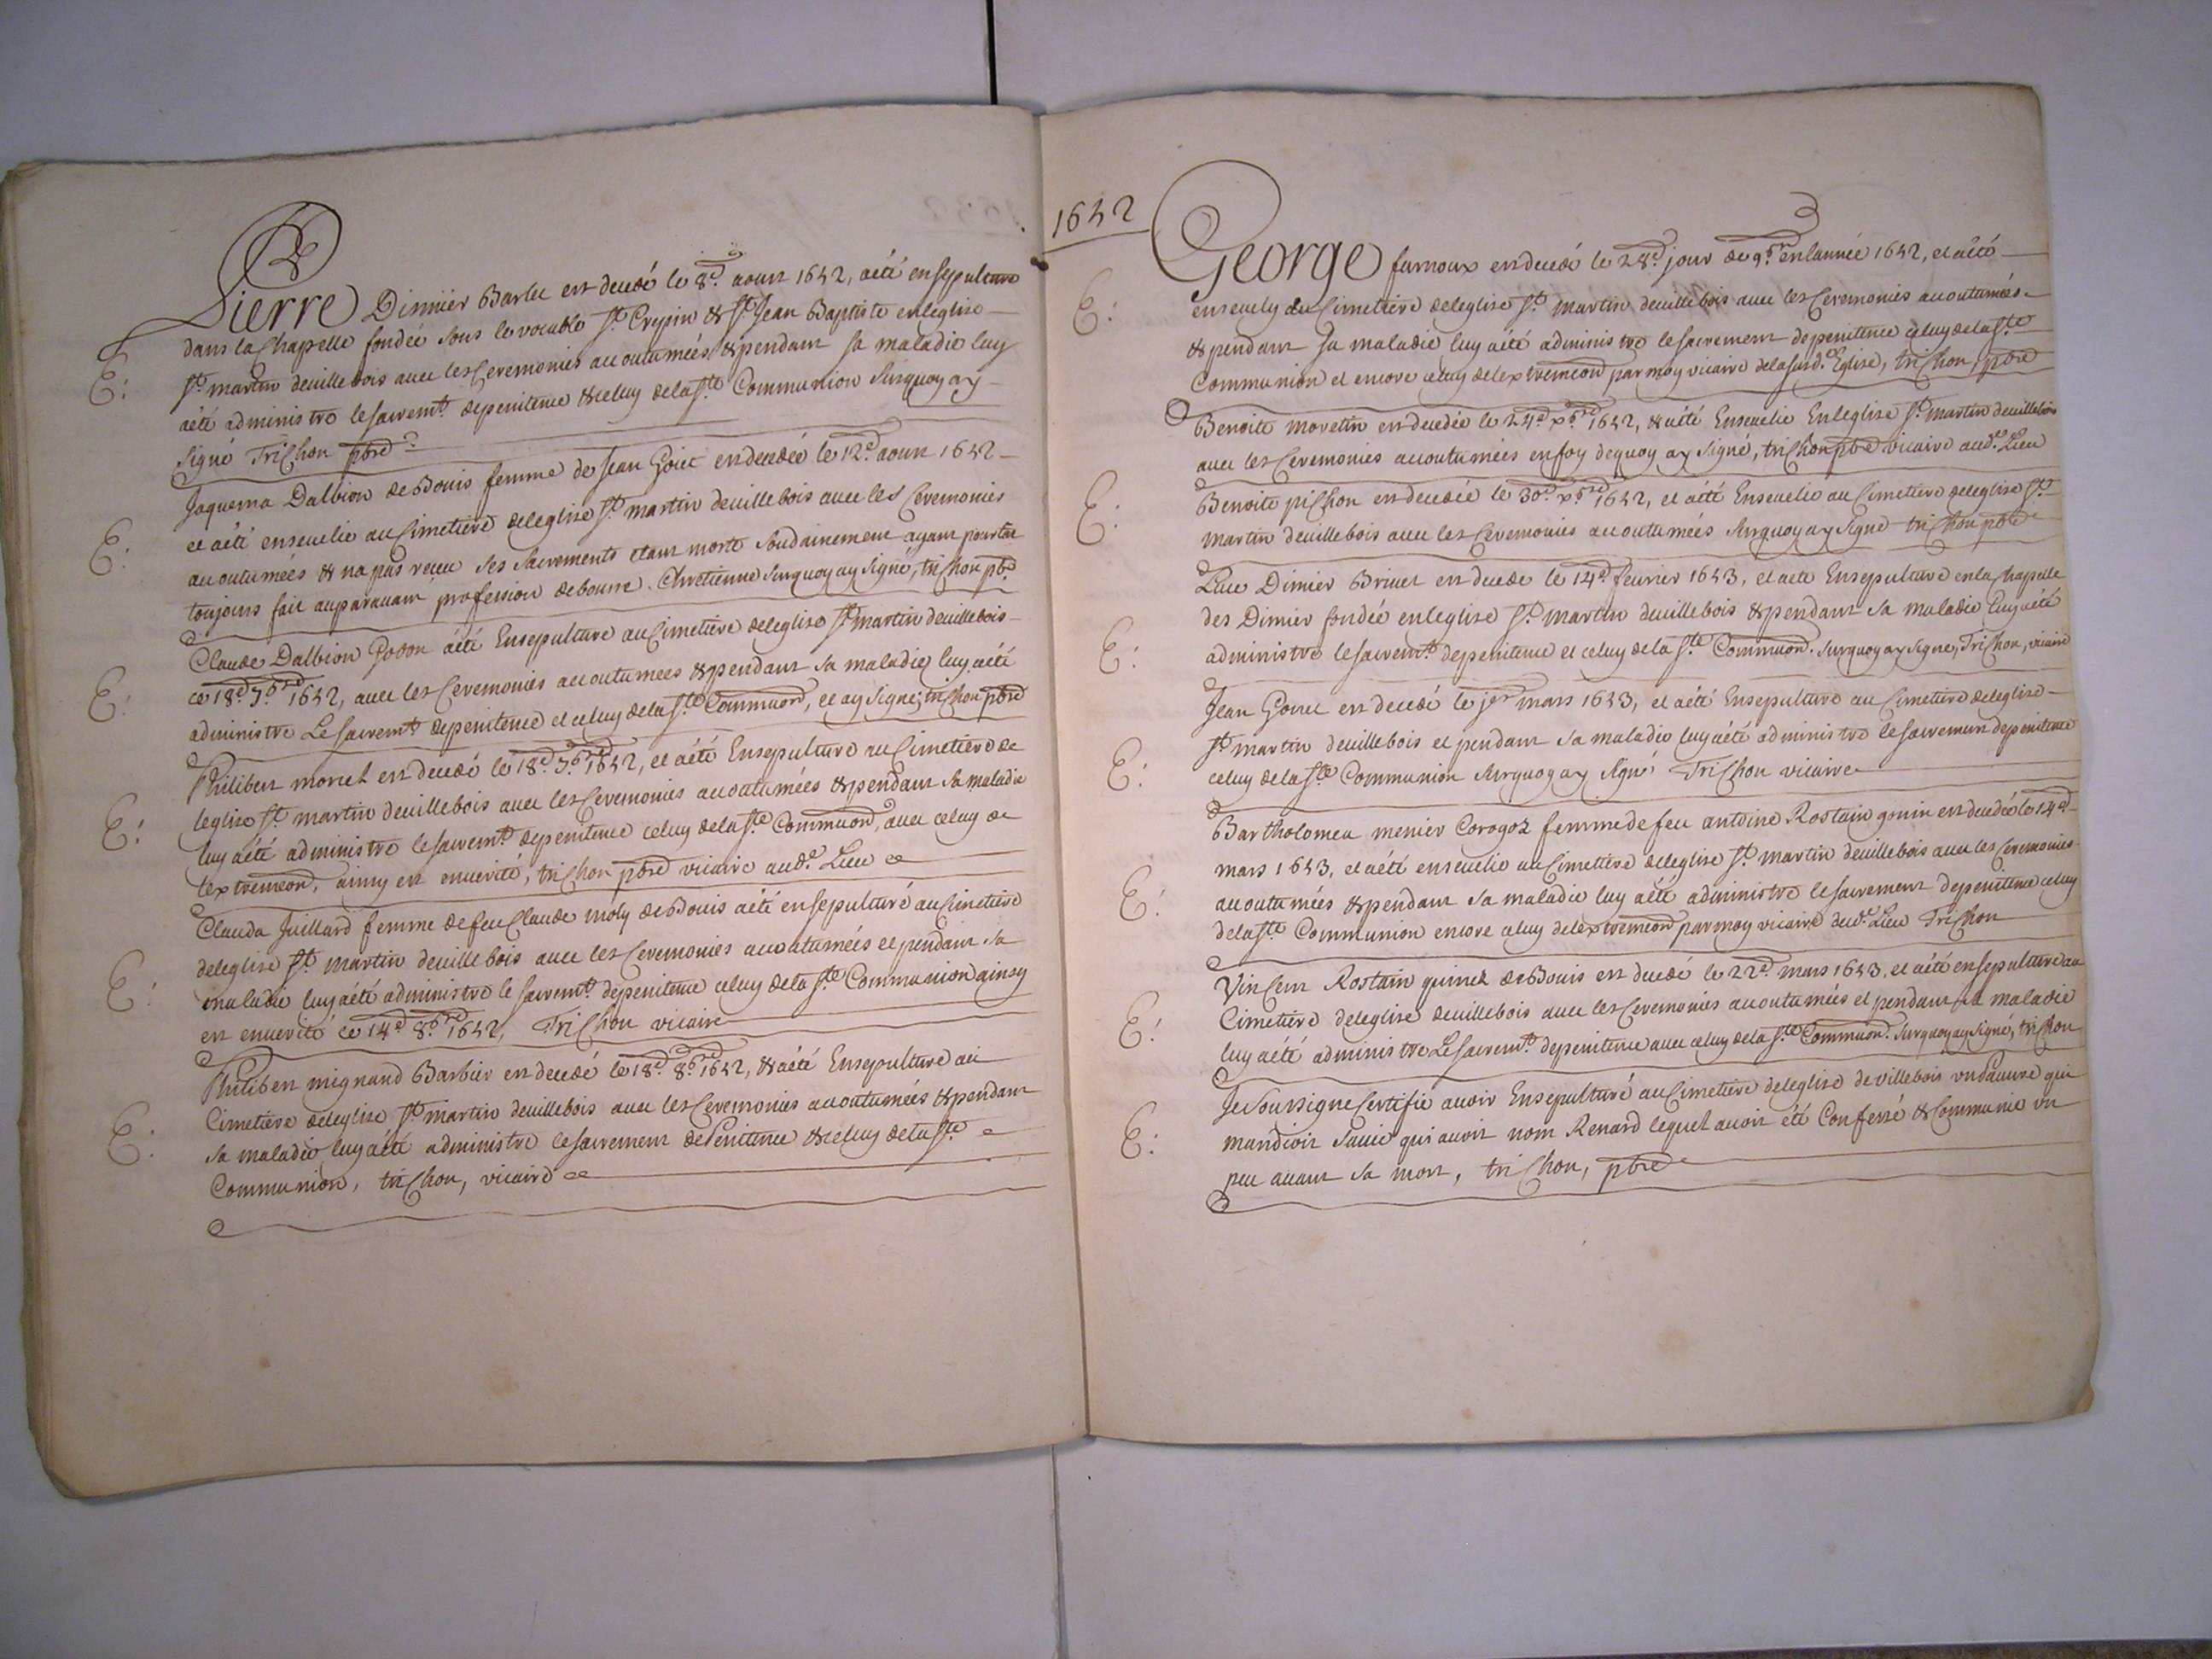 Pierre Dimier Barlet est decedé le 8e. aoust 1642, aété ensepulturé
dans la Chapelle fondée sous le vocable St. Crepin & St. Jean Baptiste enleglise
E: St. martin deuillebois auec les Ceremonies accoutumées & pendant sa maladie luy
aété administré le sacremt. depenitence & celuy dela ste. Communion surquoy ay
signé Trichon pbre
Jaquema Dalbion de Bouis femme de Jean Goiet est decedée le 12e. aoust 1642
E: et aété enseuelie au Cimetiere deleglise St. martin deuillebois auec les Ceremonies
accoutumées & na pas reçeu ses sacrements etant morte soudainement ayant pourtant
toujours fait auparauant profession debonne Chretienne surquoy ay signé, trichon pbre
Claude Dalbion Godon aété Ensepulturé au Cimetiere deleglise St. martin deuillebois
E: ce 18e. 7bre. 1642, auec les Ceremonies accoutumées & pendant sa maladie luy aété
administré Le sacremt. depenitence et celuy dela ste. Communon, et ay signé; trichon pbre
Philibert morel est decedé le 18e. 7bre. 1642, et aété Ensepulturé au Cimetiere de
E: leglise St. martin deuillebois auec les Ceremonies accoutumées & pendant sa maladie
luy aété administré le sacremt. depenitence celuy dela ste. Communon, auec celuy de
lextremeon, ainsy est enuerité, trichon pbre vicaire aud. Lieu
Clauda Juillard femme de feu Claude moly de Bouis aété ensepulturé au Cimetiere
E: deleglise St. martin deuillebois auec les Ceremonies accoutumées et pendant sa
maladie luy aété administré le sacremt. depenitence celuy dela ste. Communion ainsy
est enuerité ce 14e. 8bre. 1642, Trichon vicaire
Philibert mignand Barbier est decedé le 18e. 8bre. 1642, & aété Ensepulturé au
E: Cimetiere deleglise St. martin deuillebois auec les Ceremonies accoutumées & pendant
sa maladie luy aété administré le sacrement de Penitence & celuy dela ste
Communion, trichon, vicaire
1642
George furnoux est decedé le 28e. jour de 9bre. en lannée 1642, et aété
E: enseuely au Cimetiere deleglise St. martin deuillebois auec les Ceremonies accoutumées
& pendant sa maladie luy aété administré le sacrement depenitence celuy dela ste
Communion et encore celuy delextremeon par moy vicaire dela susd. Eglise, trichon, pbre
Benoite moretin est decedée le 24e. xbre. 1642, & aété Enseuelie Enleglise St. martin deuillebois
auec les Ceremonies accoutumées enfoy dequoy ay signé, trichon pbre vicaire aud. Lieu
E: Benoite pichon est decedée le 30e. xbre. 1642, et aété Enseuelie au Cimetiere deleglise St.
martin deuillebois auec les Ceremonies accoutumées surquoy ay signé trichon pbre
Luce Dimier Brinet est decedé le 14e. feurier 1643, et aete Ensepulturé en la Chapelle
des Dimier fondée enleglise St. martin deuillebois & pendant sa maladie luy aété
E: administré le sacremt. depenitence et celuy dela ste. Communon. surquoy ay signe, Trichon, vicaire
Jean Goiret est decedé le jer mars 1643, et aété Ensepulturé au Cimetiere deleglise
St. martin deuillebois et pendant sa maladie luy aété administré le sacrement depenitence
E: celuy dela ste. Communion surquoy ay signé Trichon vicaire
Bartholomea menier Corogoz femme de feu antoine Rostain gonin est decedée le 14e.
mars 1643, et aété enseuelie au Cimetiere deleglise St. martin deuillebois auec les Ceremonies
E: accoutumées & pendant sa maladie luy aété administré le sacrement depenitence celuy
dela ste. Communion encore celuy delextremeon par moy vicaire dud. Lieu Trichon
Vincent Rostain quinet de Bouis est decedé le 22e. mars 1643, et aété ensepulturé au
E: Cimetiere deleglise deuillebois auec les Ceremonies accoutumées et pendant sa maladie
luy aété administré Le sacremt. depenitence auec celuy dela ste. Communon. surquoy ay signé, trichon
Je Soussigne Certifie auoir Ensepulturé au Cimetiere deleglise de villebois vn Pauure qui
E: mandioit sauie qui auoit nom Renard lequel auoit été Confessé & Communie vn
peu auant sa mort, trichon, pbre